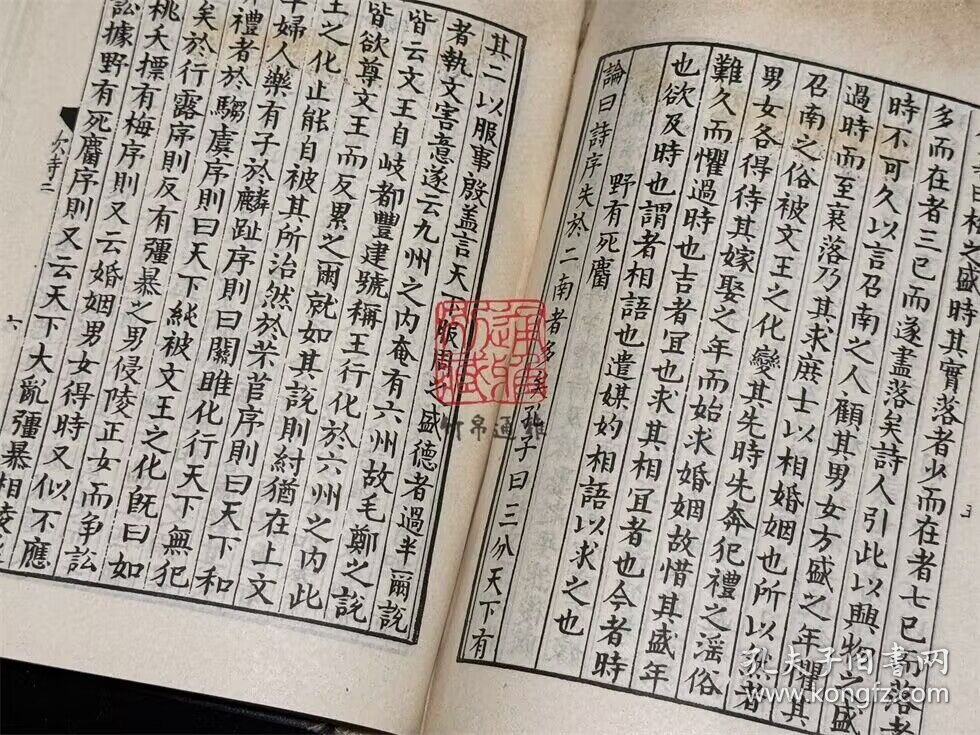 梅之盛時其實落者少而在者七已而落者
多而在者三已而遂盡落矣詩人引此以興物之盛
時不可久以言召南之人顧其男女方盛之年懼其
過時而至衰落乃其求庶士以相婚姻也所以然者
召南之俗被文王之化變其先時先奔犯禮之淫俗
男女各得待其嫁娶之年而始求婚姻故惜其盛年
難久而懼過時也吉者宜也求其相宜者也今者時
也欲及時也謂者相語也遣媒妁相語以求之也
野有死麕
論曰詩序失於二南者多矣孔子曰三分天下有
其二以服事殷盖言天下服周之盛德者過半爾說
者執文害意遂云九州之內奄有六州故毛鄭之說
皆云文王自岐都豐建號稱王行化於六州之內此
皆欲尊文王而反累之爾就如其說則紂猶在上文
王之化止能自被其所治然於芣苢序則曰天下和
平婦人樂有子於麟趾序則曰關雎化行天下無犯
非禮者於騶虞序則曰天下純被文王之化旣曰如
此矣於行露序則反有彊暴之男侵陵正女而争訟
桃夭摽有梅序則又云婚姻男女得時又似不應
訟據野有死麕序則又云天下大亂彊暴相陵
六
五
孔夫子旧書网
www.kongfz.com